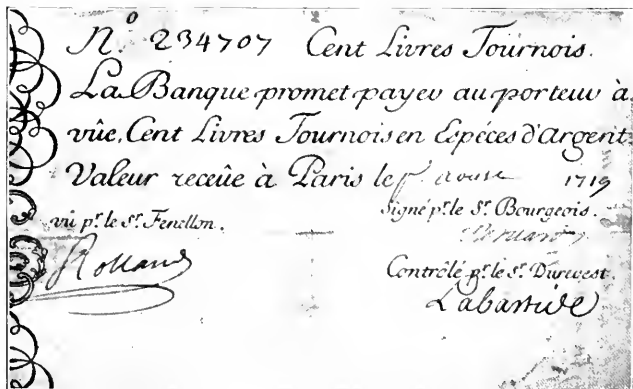 N.º 234707 Cent Livres Tournois.
La Banque promet payer au porteur à
vûe, Cent Livres Tournois en Espéces d'Argent.
Valeur receüe à Paris le 1719
vû pr. le Sr. Fenellon.
Signé pr. le Sr. Bourgeois.
Rolland
Contrôlé pr. le Sr. Durevest.
Labastide